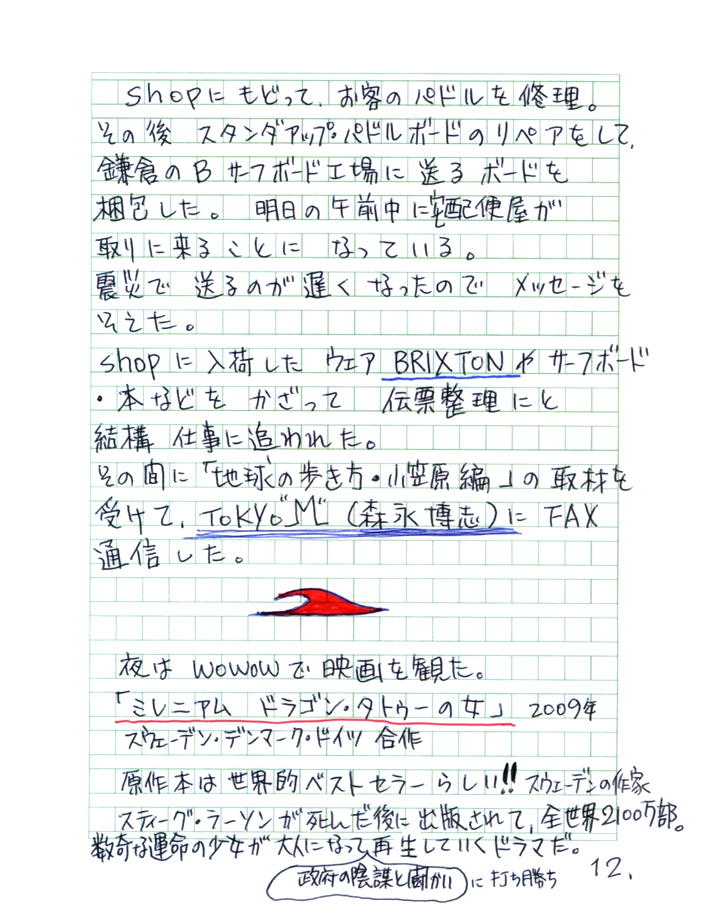 shopにもどって、お客のパドルを修理。
その後 スタンダアップ・パドルボードのリペアをして、
鎌倉のB サーフボード工場に送るボードを
梱包した。 明日の午前中に宅配便屋が
取りに来ることに なっている。
震災で 送るのが遅くなったので メッセージを
そえた。
shopに入荷した ウェア BRIXTONや サーフボード
・本などを かざって 伝票整理にと
結構 仕事に追われた。
その間に「地球の歩き方・小笠原編」の取材を
受けて、TOKYO"M"(森永博志)に FAX
通信した。
夜は WOWOWで映画を観た。
「ミレニアム ドラゴン・タトゥーの女」 2009年
スウェーデン・デンマーク・ドイツ 合作
原作本は世界的ベストセラーらしい!! スウェーデンの作家
スティーグ・ラーソンが死んだ後に出版されて、全世界2100万部。
数奇な運命の少女が大人になって再生していくドラマだ。
政府の陰謀と闘かい に打ち勝ち
12.